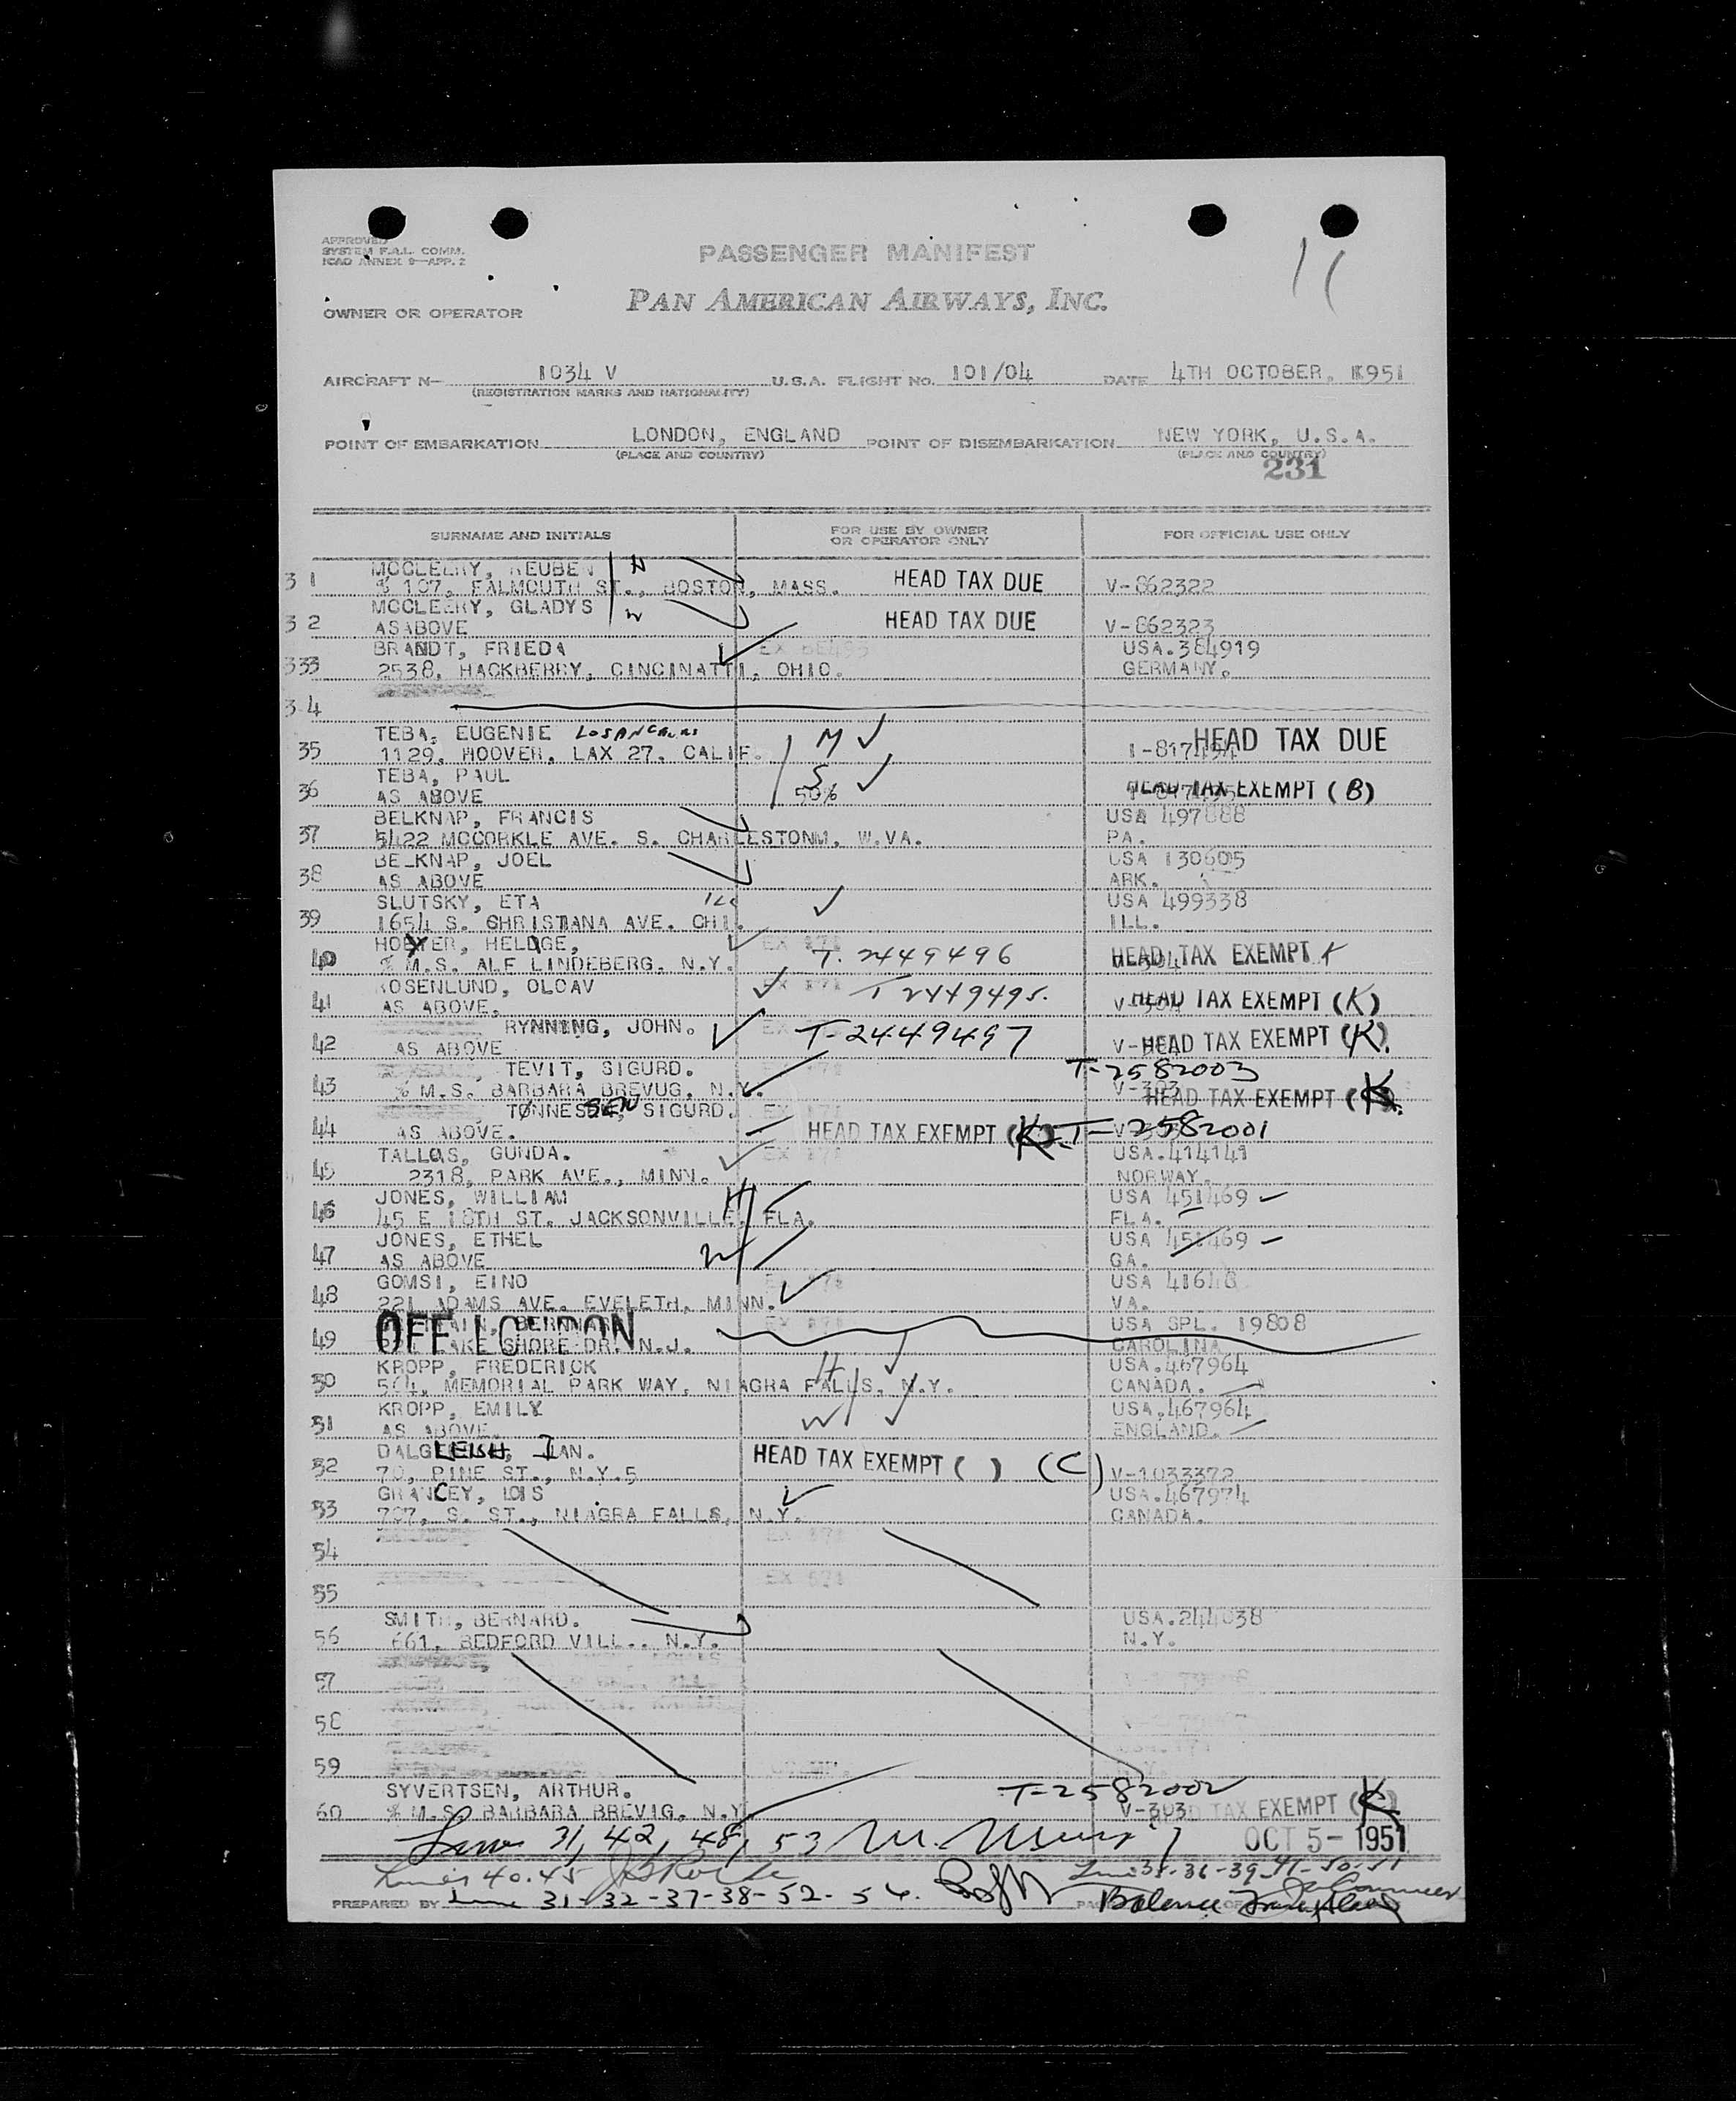 APPROVED
SYSTEM F.A.L. COMM.
ICAO ANNEX 9—APP. 2
PASSENGER MANIFEST
PAN AMERICAN AIRWAYS, INC.
OWNER OR OPERATOR
AIRCRAFT N— 1034 V U.S.A. FLIGHT NO. 101/04 DATE 4TH OCTOBER, 1951
(REGISTRATION MARKS AND NATIONALITY)
POINT OF EMBARKATION LONDON, ENGLAND POINT OF DISEMBARKATION NEW YORK, U.S.A.
(PLACE AND COUNTRY) (PLACE AND COUNTRY)
231
SURNAME AND INITIALS FOR USE BY OWNER OR OPERATOR ONLY FOR OFFICIAL USE ONLY
MCCLEERY, REUBEN H
31 % 107, FALMOUTH ST., BOSTON, MASS. HEAD TAX DUE V-862322
MCCLEERY, GLADYS W
32 ASABOVE HEAD TAX DUE V-862323
BRANDT, FRIEDA USA.384919
333 2538, HACKBERRY, CINCINATTI, OHIO. GERMANY.
34
TEBA, EUGENIE LOSANGELES M HEAD TAX DUE
35 1129, HOOVER, LAX 27, CALIF. 1-817494
TEBA, PAUL S
36 AS ABOVE 50% HEAD TAX EXEMPT (B)
BELKNAP, FRANCIS USA 497888
37 5422 MCCORKLE AVE. S. CHARLESTONM, W.VA. PA.
BELKNAP, JOEL USA 130605
38 AS ABOVE ARK.
SLUTSKY, ETA ILL USA 499338
39 1654 S. CHRISTIANA AVE. CHI. ILL.
HOEYER, HELDGE,
40 % M.S. ALF LINDEBERG, N.Y. T. 2449496 HEAD TAX EXEMPT K
ROSENLUND, OLOAV
41 AS ABOVE. T 2449495. HEAD TAX EXEMPT (K)
RYNNING, JOHN.
42 AS ABOVE T-2449497 HEAD TAX EXEMPT (K).
TEVIT, SIGURD. T-2582003
43 % M.S. BARBARA BREVUG, N.Y. V-303 HEAD TAX EXEMPT (K).
TØNNESSEN, SIGURD.
44 AS ABOVE. HEAD TAX EXEMPT (K). T-2582001
TALLQS, GUNDA. USA.414141
45 2318, PARK AVE., MINN. NORWAY.
JONES, WILLIAM H USA 451469
46 45 E 18TH ST. JACKSONVILLE, FLA. FLA.
JONES, ETHEL W USA 451469
47 AS ABOVE GA.
GOMSI, EINO USA 41648
48 221 ADAMS AVE. EVELETH, MINN. VA.
OFF LONDON USA SPL. 19808
49 LAKE SHORE DR. N.J. CAROLINA
KROPP, FREDERICK H USA.467964
50 504, MEMORIAL PARK WAY, NIAGRA FALLS, N.Y. CANADA.
KROPP, EMILY USA.467964
51 AS ABOVE. W ENGLAND.
DALGLEISH, IAN.
52 70, PINE ST., N.Y.5 HEAD TAX EXEMPT ( ) (C) V-1033372
GRANCEY, LOIS USA.467974
53 707, S. ST., NIAGRA FALLS, N.Y. CANADA.
54
55
SMITH, BERNARD. USA.244038
56 661, BEDFORD VILL., N.Y. N.Y.
57
58
59
SYVERTSEN, ARTHUR. T-2582002
60 % M.S. BARBARA BREVIG, N.Y. V-303 HEAD TAX EXEMPT (K)
31, 42, 48, 53 OCT 5- 1951
Lines 40.45 35-36-39-47-50-51
PREPARED BY Lines 31-32-37-38-52-56. Balance